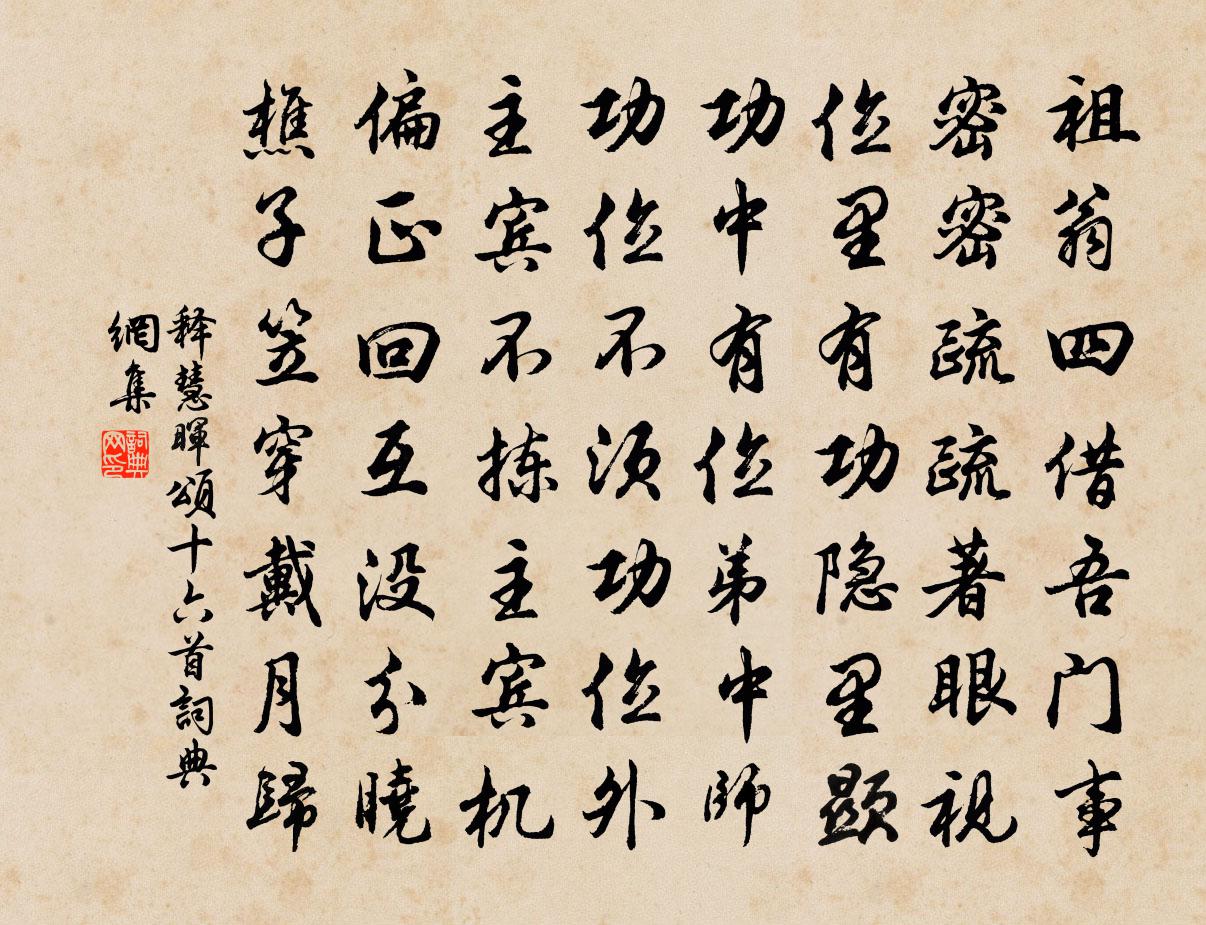 祖翁四借吾门事
密密疏疏著眼视
位里有功隐里显
功中有位弟中師
功位不须功位外
主宾不拣主宾机
偏正回互没分曉
樵子笠穿戴月歸
释慧暉頌十六首詞典
網集
詞典网印